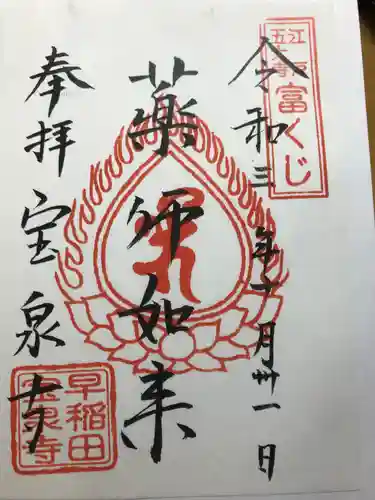 江戸
五大寺
富くじ
令和三年 月卅一日
薬師如来
奉拝
宝泉寺
早稲田
宝泉寺